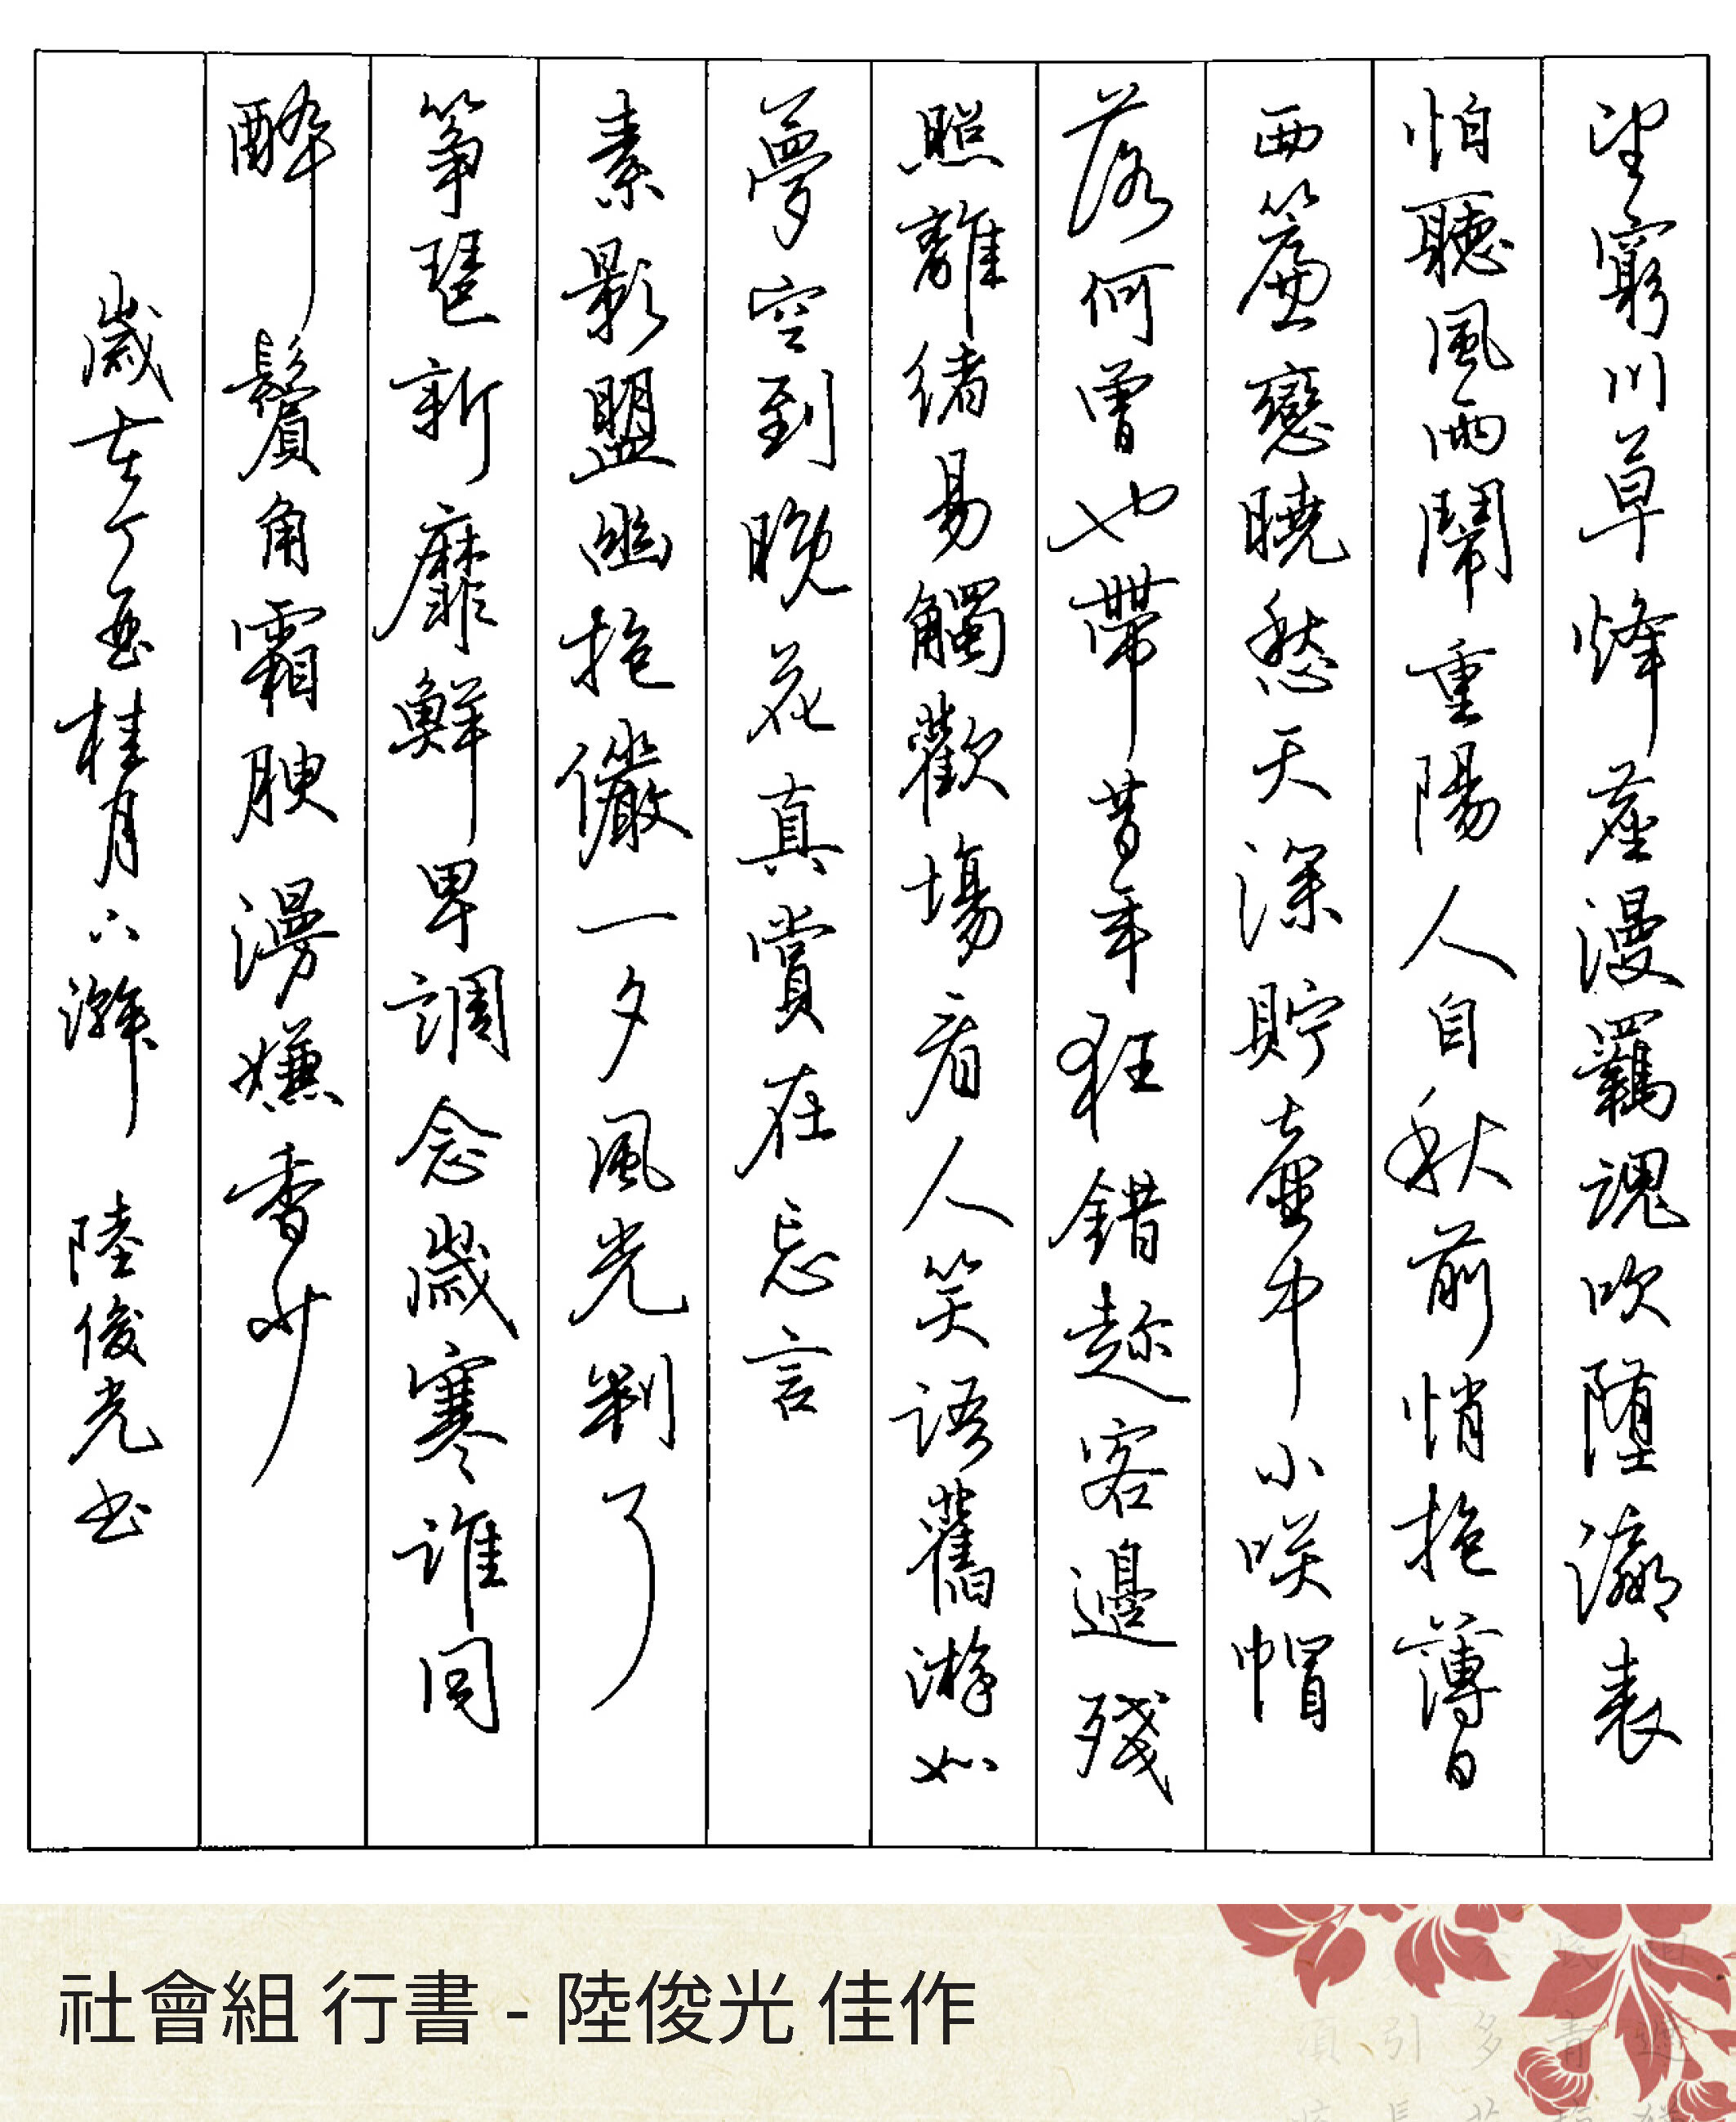 望窮川草烽塵漫羈魂吹墮瀛表
怕聽風雨鬧重陽人自秋前悄抱薄日
西簾戀曉愁天深貯壺中小咲帽
落何曾也帶昔年狂錯趂客邊殘
照離緒易觸歡場看人笑語舊游如
夢空到晚花真賞在忘言
素影盟幽抱儼一夕風光判了
箏琶新靡鮮卑調念歲寒誰同
醉鬢角霜腴漫嫌香少
歲在丁酉桂月六瀚 陸俊光书
社會組 行書 - 陸俊光 佳作